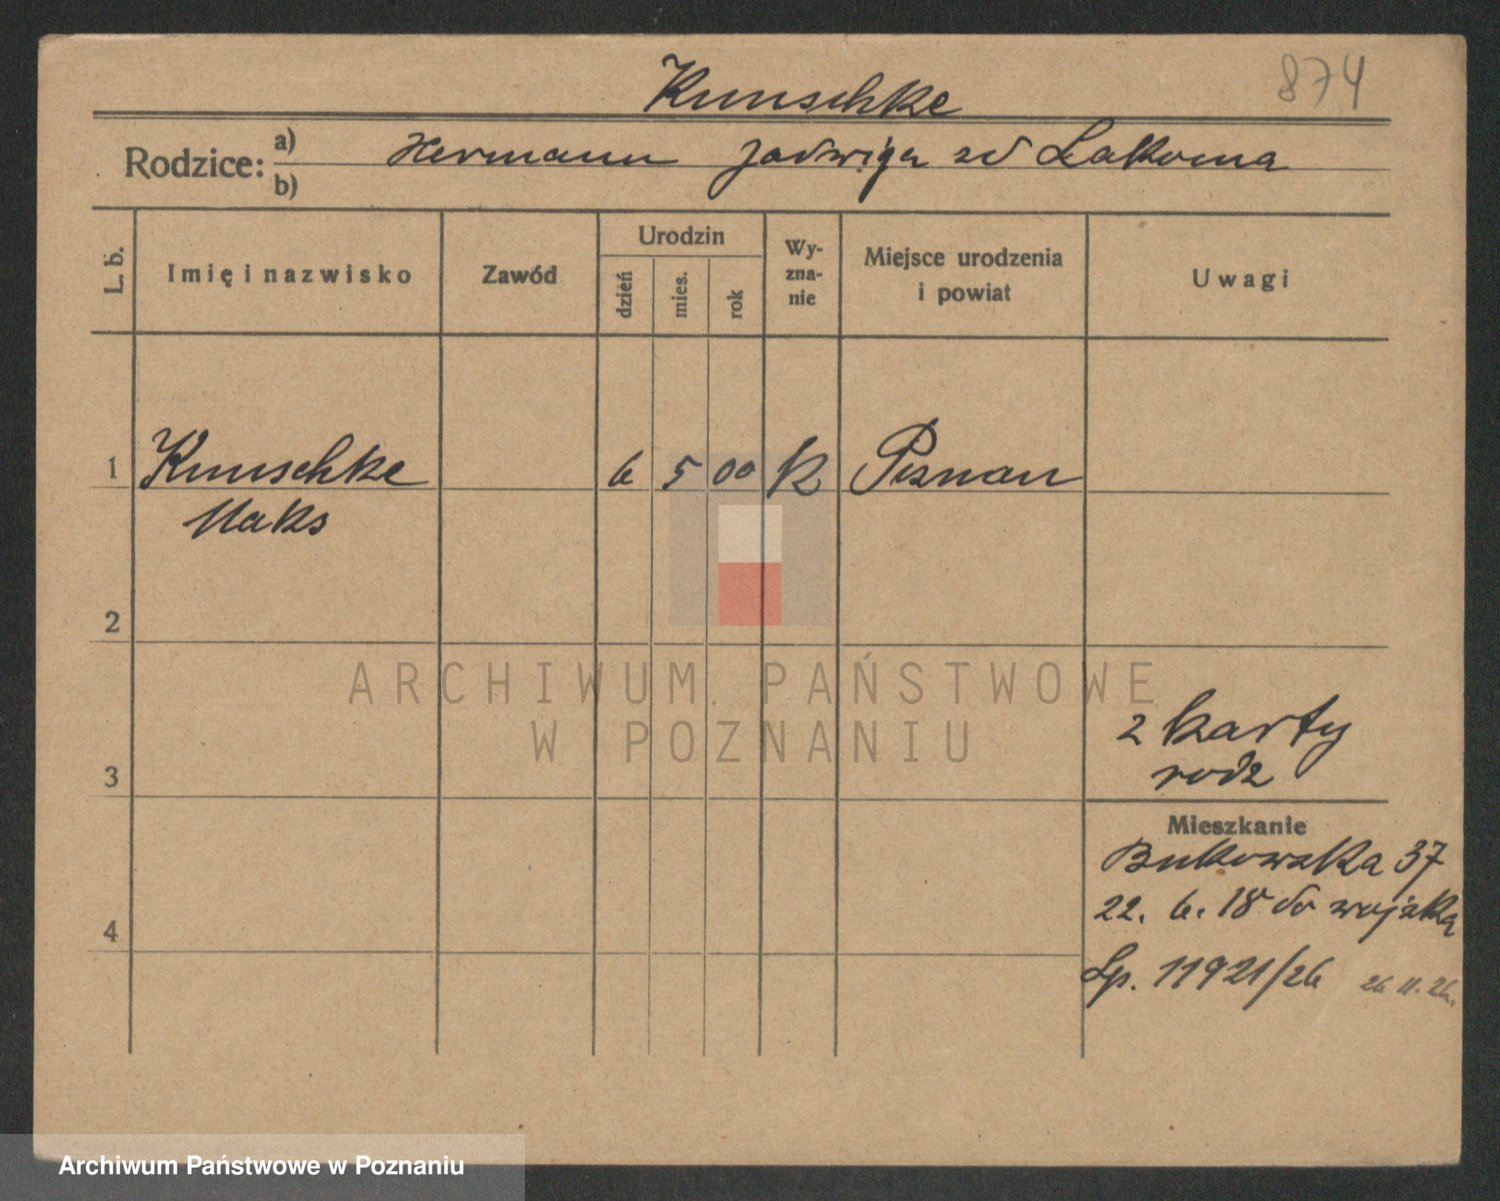 874
Kunschke
Rodzice: a) Hermann Jadwiga zd Lakoma
b)
L. b. Imię i nazwisko Zawód Urodzin dzień mies. rok Wy-zna-nie Miejsce urodzenia i powiat Uwagi
1 Kunschke 6 5 00 K Poznan
Maks
2
ARCHIWUM PAŃSTWOWE
W POZNANIU
2 karty
rodz
3
Mieszkanie
Bukowska 37
22. 6. 18 do wojska
4
Lp. 11921/26 26 11. 26.
Archiwum Państwowe w Poznaniu